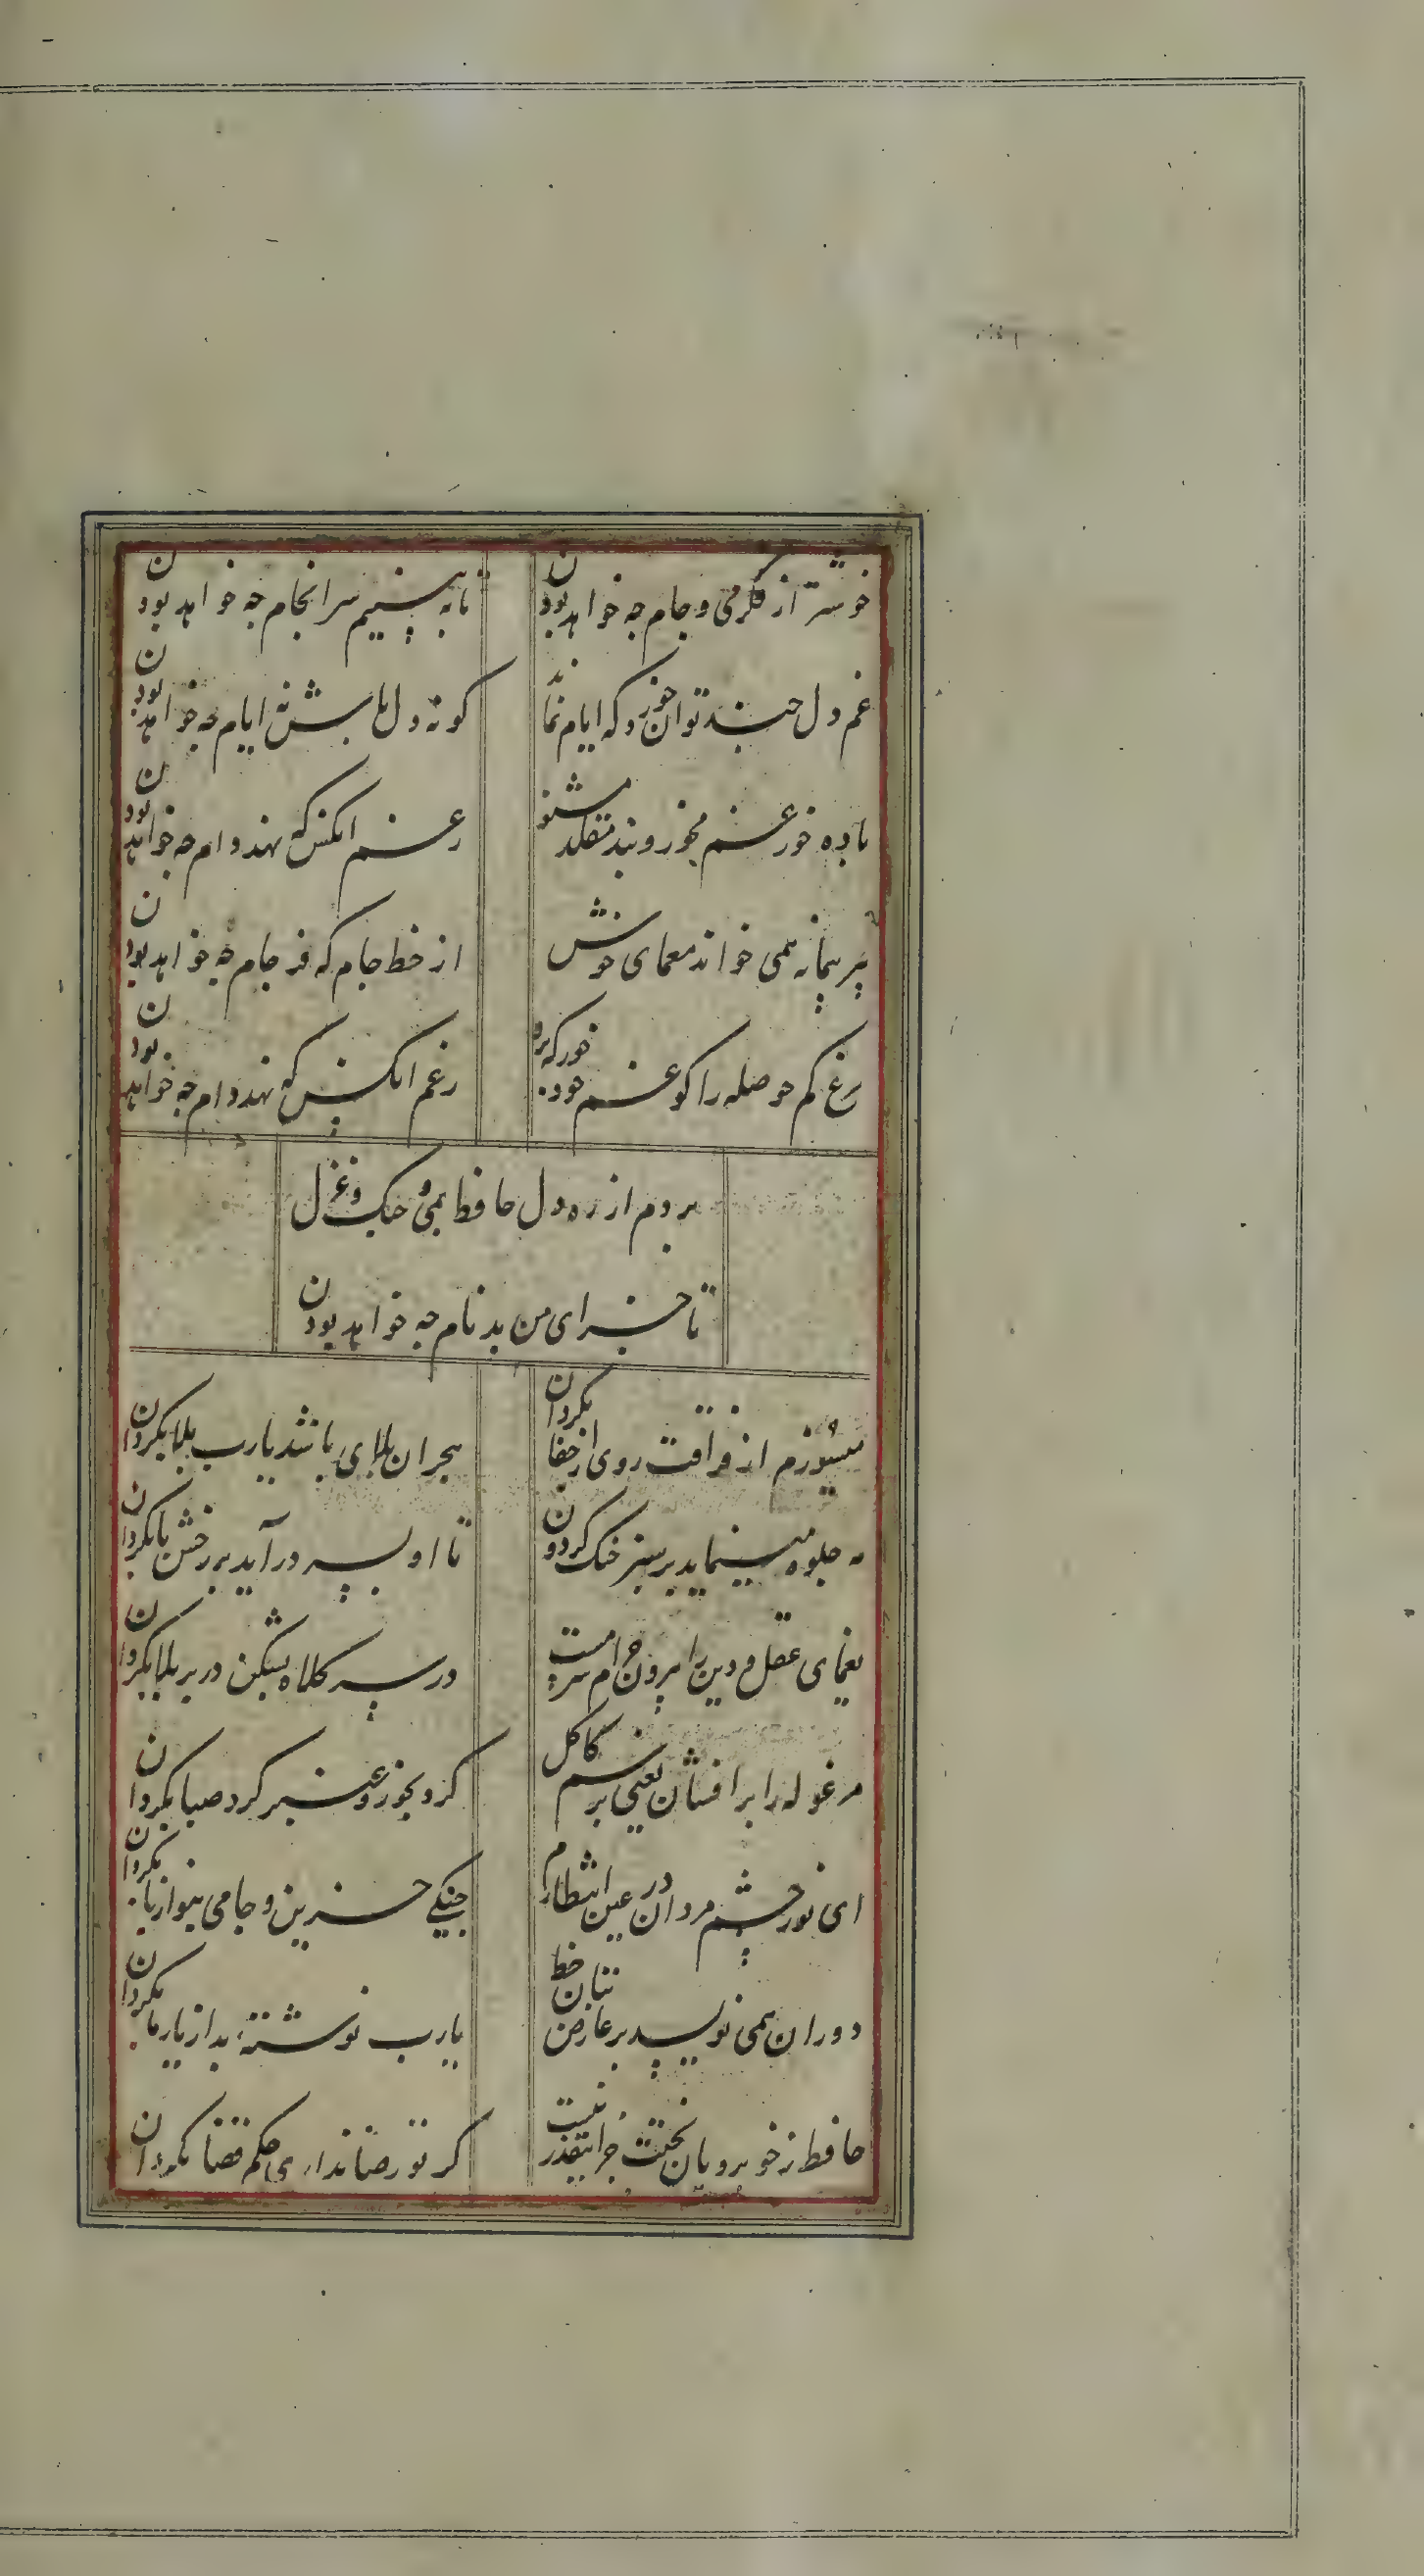 خوشتر از فکر می و جام چه خواهد بودن تا به بینیم سرانجام چه خواهد بودن
غم دل چند توان خورد که ایام نماند کو نه دل باش نه ایام چه خواهد بودن
باده خور غم مخور و پند مقلد مشنو رغم انکس که نهد دام چه خواهد بودن
پیر پیمانه همی خواند معمای خوش از خط جام که فرجام چه خواهد بودن
مرغ کم حوصله را کو غم خود خور که بره رغم انکس که نهد دام چه خواهد بودن
بردم از ره دل حافظ بمی و چنک و غزل
تا جزای من بدنام چه خواهد بودن
میسوزم از فراقت روی از جفا بگردان هجران بلای باشد یارب بلا بگردان
مه جلوه مینماید بر سبز خنک کردون تا او بسر درآید بر رخش پا بگردان
یغمای عقل و دین را بیرون خرام سرمست در سر کلاه بشکن در بر بلا بگردان
مرغوله را برافشان یعنی برسم کاکل کرد بخور و عنبر کرد صبا بگردان
ای نور چشم مردان در عین انتظارم چنکی حزین و جامی بنواز یا بگردان
دوران همی نویسد بر عارض بتان خط یارب نوشته بد از یار ما بگردان
حافظ ز خوبرویان بختت جز اینقدر نیست کر تو رضا نداری حکم قضا بگردان